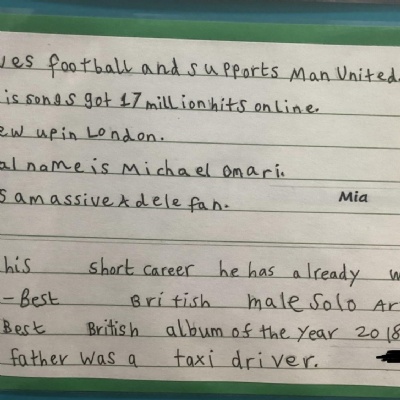 ves football and supports Man United.
is songs got 17 million hits online.
ew up in London.
al name is Michael omari.
s a massive Adele fan.
Mia
his short career he has already w
-Best British male solo Ar
Best British album of the Year 2018
father was a taxi driver.